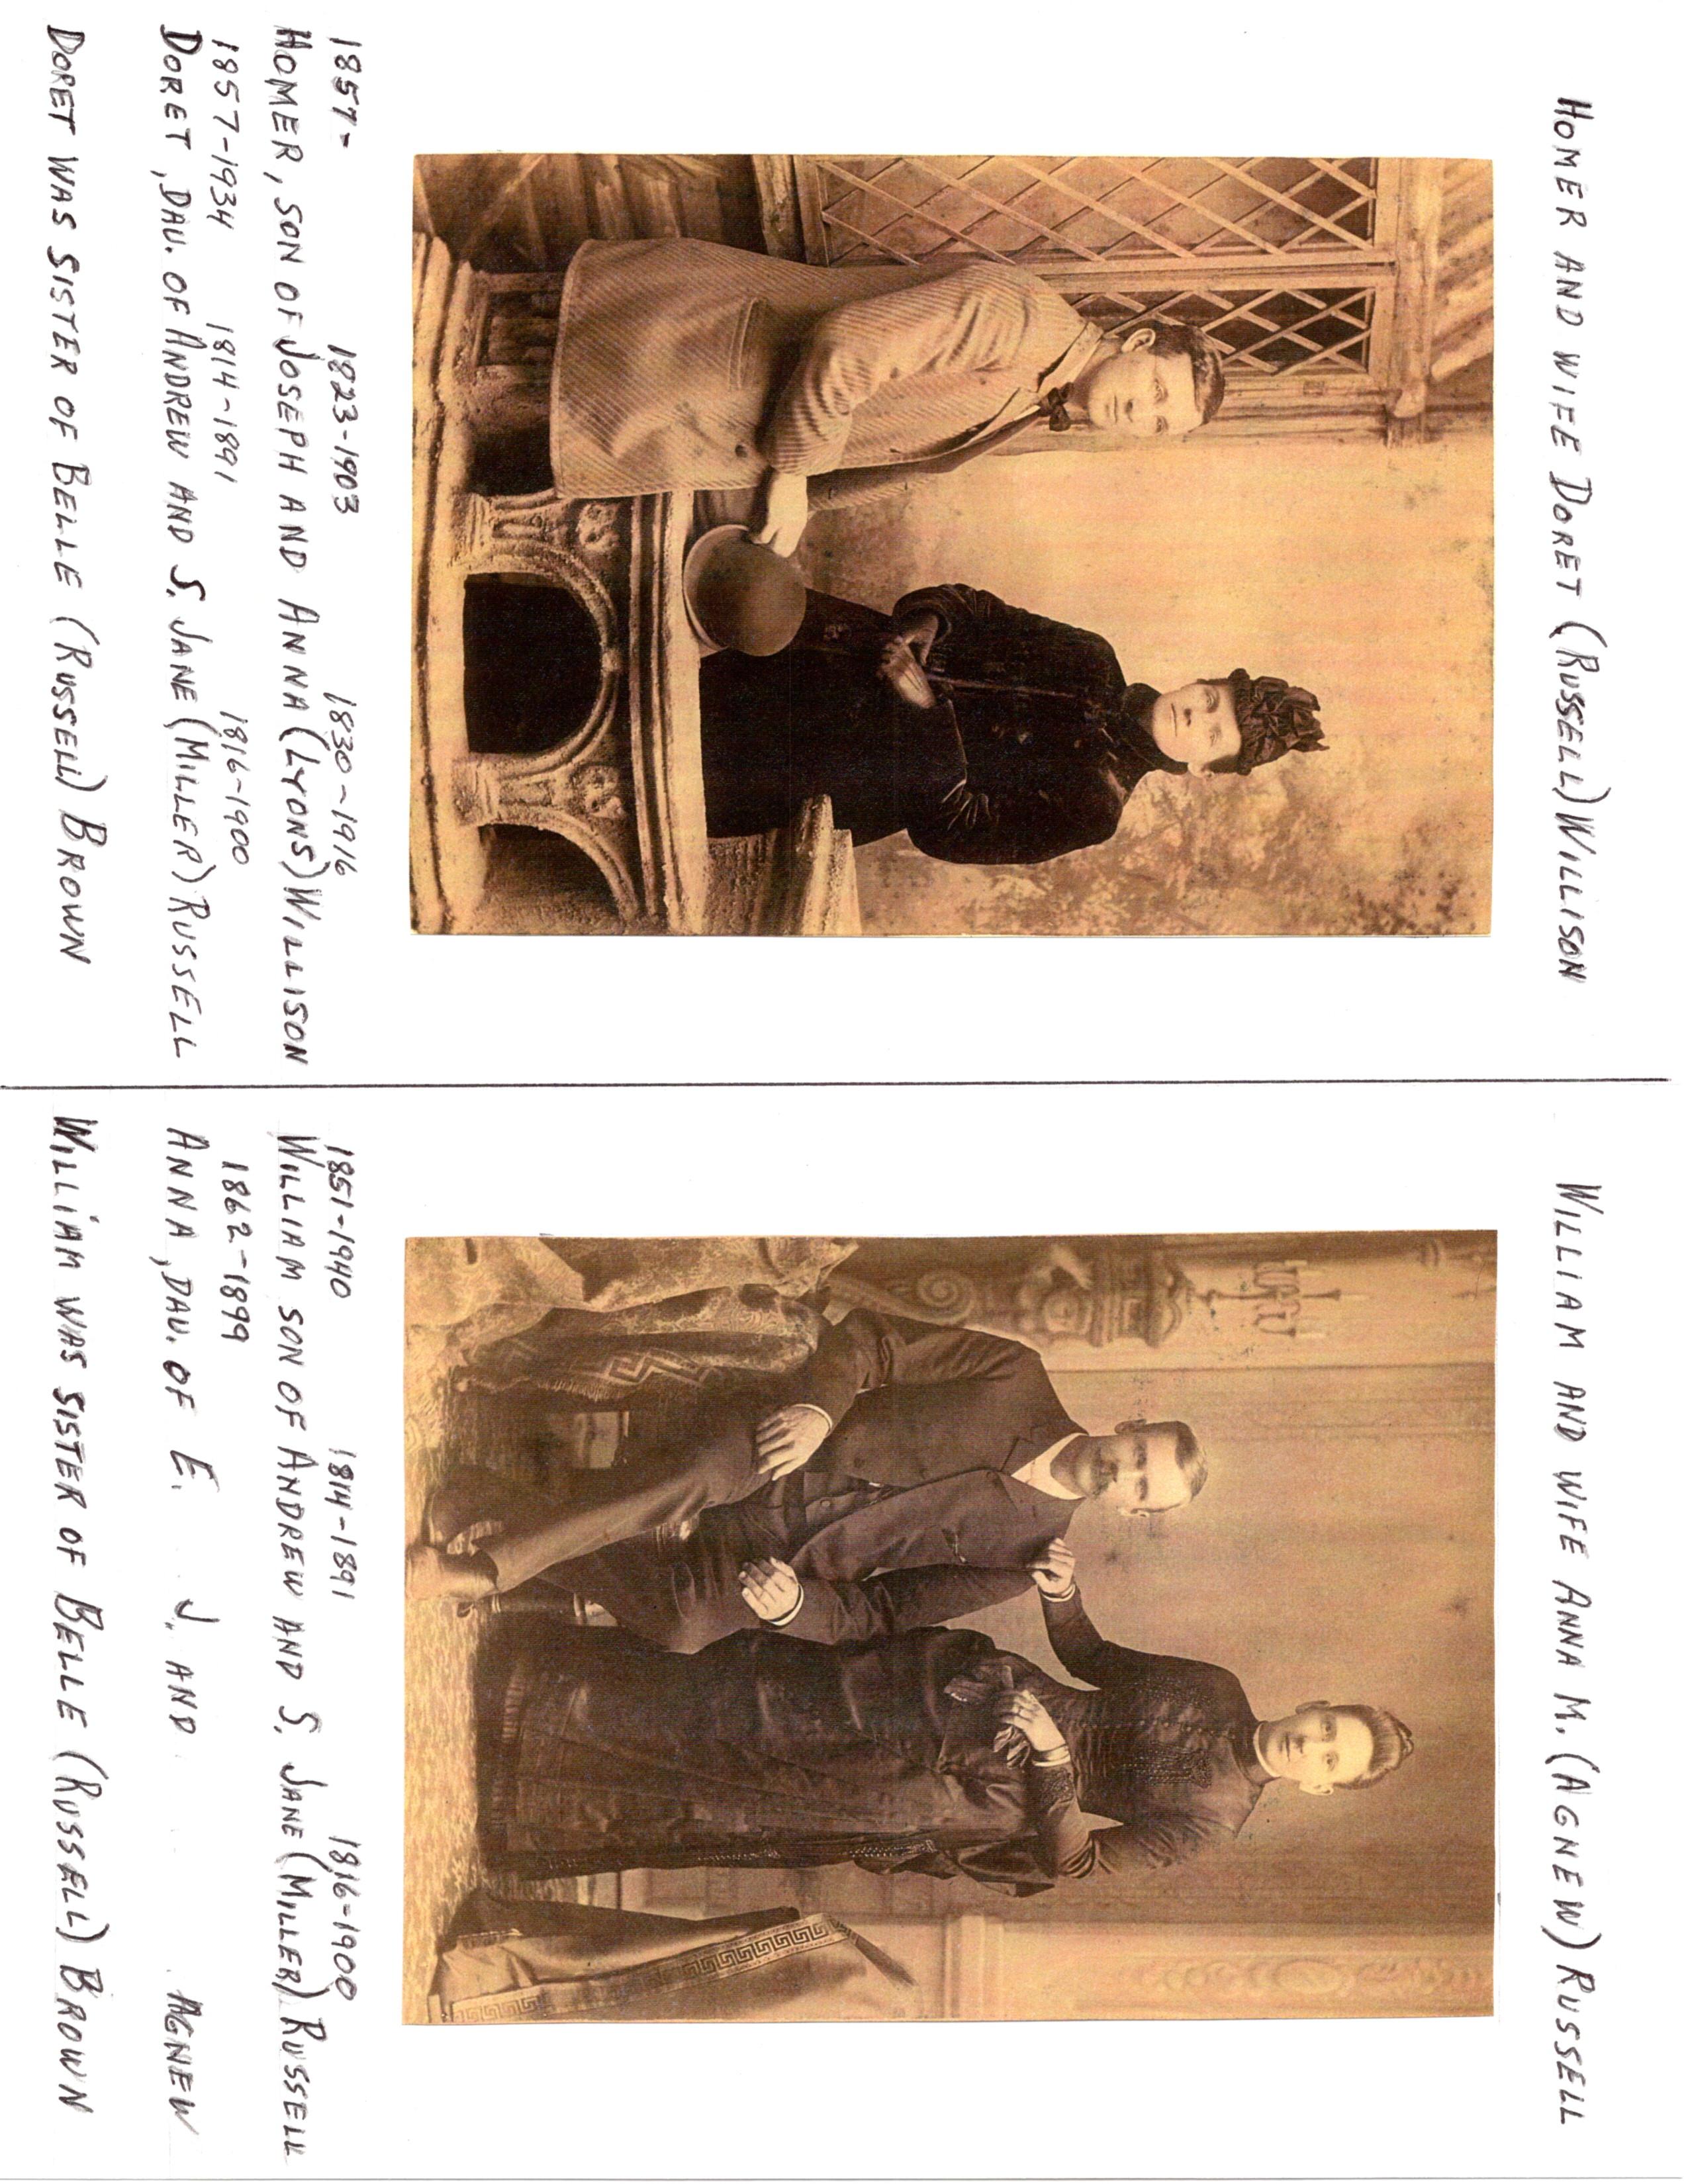 HOMER AND WIFE DORET (RUSSELL) WILLISON
1857- 1823-1903 1830-1916
HOMER, SON OF JOSEPH AND ANNA (LYONS) WILLISON
1857-1934 1814-1891 1816-1900
DORET, DAU. OF ANDREW AND S. JANE (MILLER) RUSSELL
DORET WAS SISTER OF BELLE (RUSSELL) BROWN
WILLIAM AND WIFE ANNA M. (AGNEW) RUSSELL
1851-1940 1814-1891 1816-1900
WILLIAM SON OF ANDREW AND S. JANE (MILLER) RUSSELL
1862-1899
ANNA, DAU. OF E. J. AND AGNEW
WILLIAM WAS SISTER OF BELLE (RUSSELL) BROWN